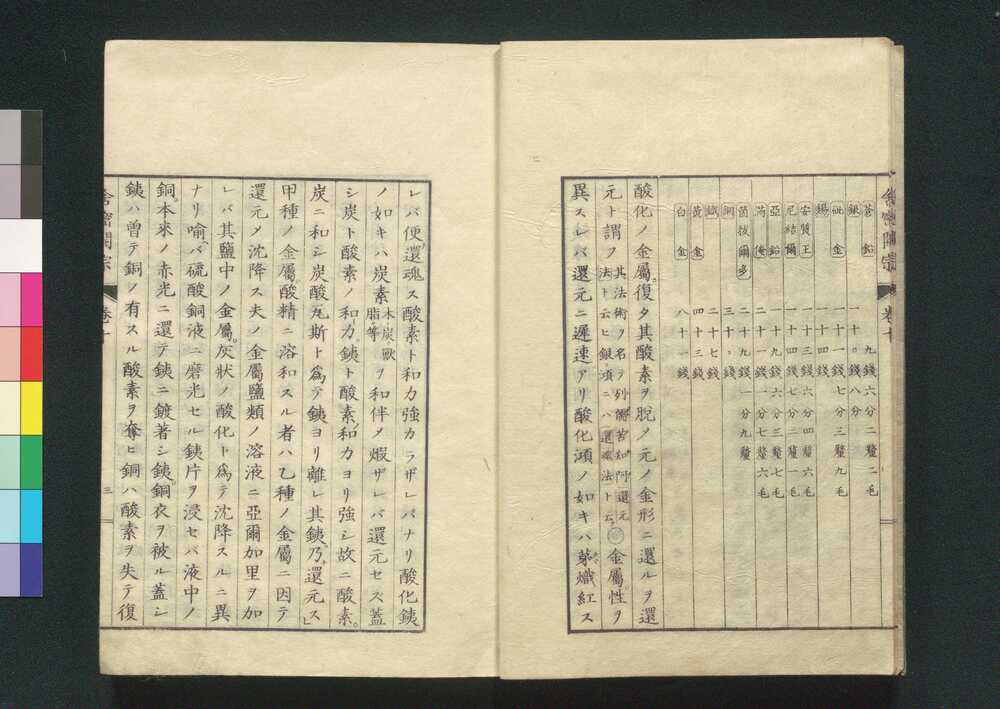 蒼鉛 九錢六分二釐二毛
銀 一十〇錢八分
砒金 一十一錢七分三釐九毛
錫 一十四錢
安質王 一十三錢六分四釐六毛
尼結爾 一十四錢七分二釐一毛
亞鉛 一十九錢六分三釐七毛
満俺 二十一錢一分七釐六毛
箇拔爾多 二十九錢一分九釐
銅 三十〇錢
鐵 二十七錢
黃金 四十三錢
白金 八十一錢
酸化ノ金屬。復タ其酸素ヲ脫ノ元ノ金形ニ還ルヲ還
元ト謂フ 其法術ヲ名 還元
法ト云ヒ銀 ニハ還魂法ト云 金屬。性ヲ
異スレバ還元ニ遲速アリ酸化澒ノ如キハ 熾紅ス
レバ便還魂ス酸素ト和力強カラザレバナリ酸化銕
ノ如キハ炭素 木炭獸
脂等 ヲ和伴メ煆ザレバ還元セズ蓋
シ炭ト酸素ノ和力。銕ト酸素ノ和力ヨリ強シ故ニ酸素。
炭ニ和シ炭酸瓦斯ト為テ銕ヨリ離レ其銕乃還元ス
甲種ノ金屬。酸精ニ溶和スル者ハ乙種ノ金屬ニ因テ
還元メ沈降ス夫ノ金屬鹽類ノ溶液ニ亞爾加里ヲ加
レバ其鹽中ノ金屬。灰狀ノ酸化ト為テ沈降スルニ異
ナリ喻バ硫酸銅液ニ磨光セル銕片ヲ浸セバ液中ノ
銅。本來ノ赤光ニ還テ銕ニ鍍著シ銕。銅衣ヲ被ル蓋シ
銕ハ曾テ銅ノ有スル酸素ヲ奪ヒ銅ハ酸素ヲ失テ復
舍密開宗 卷十 三